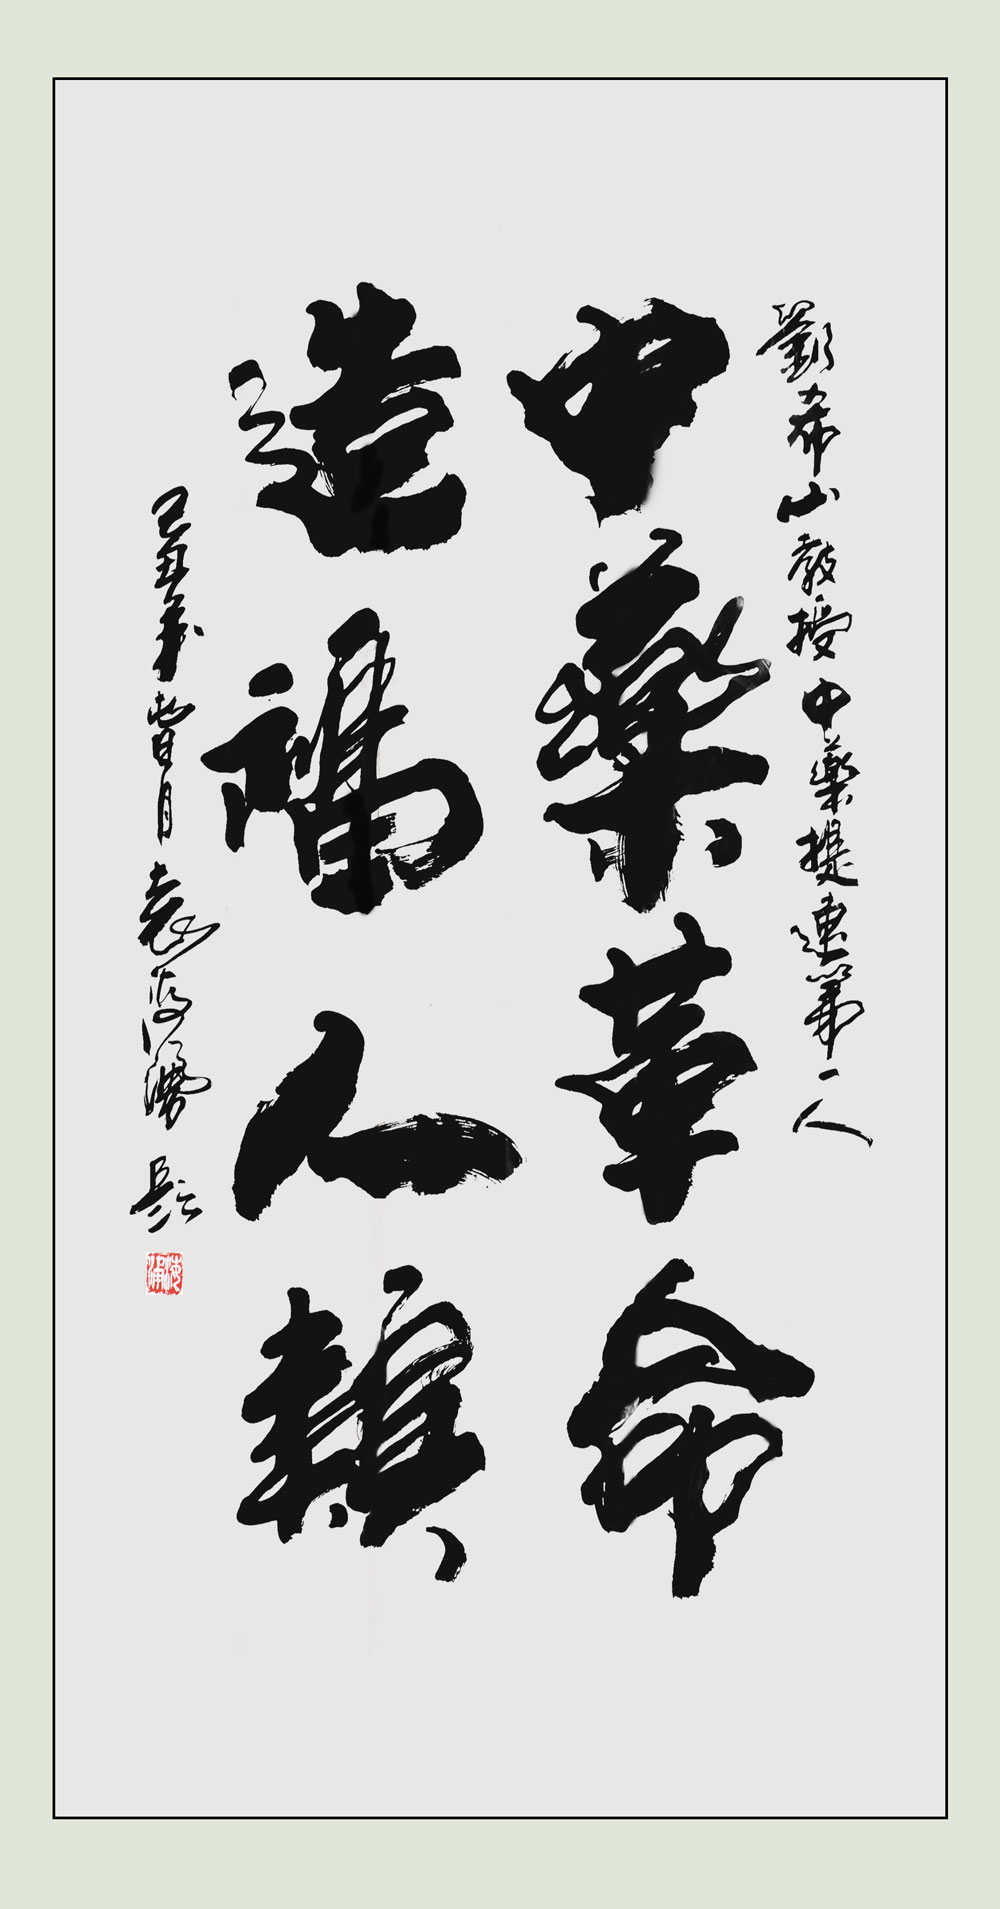 劉希山教授中藥提速第一人
中藥革命
造福人類
己丑年
月袁
題